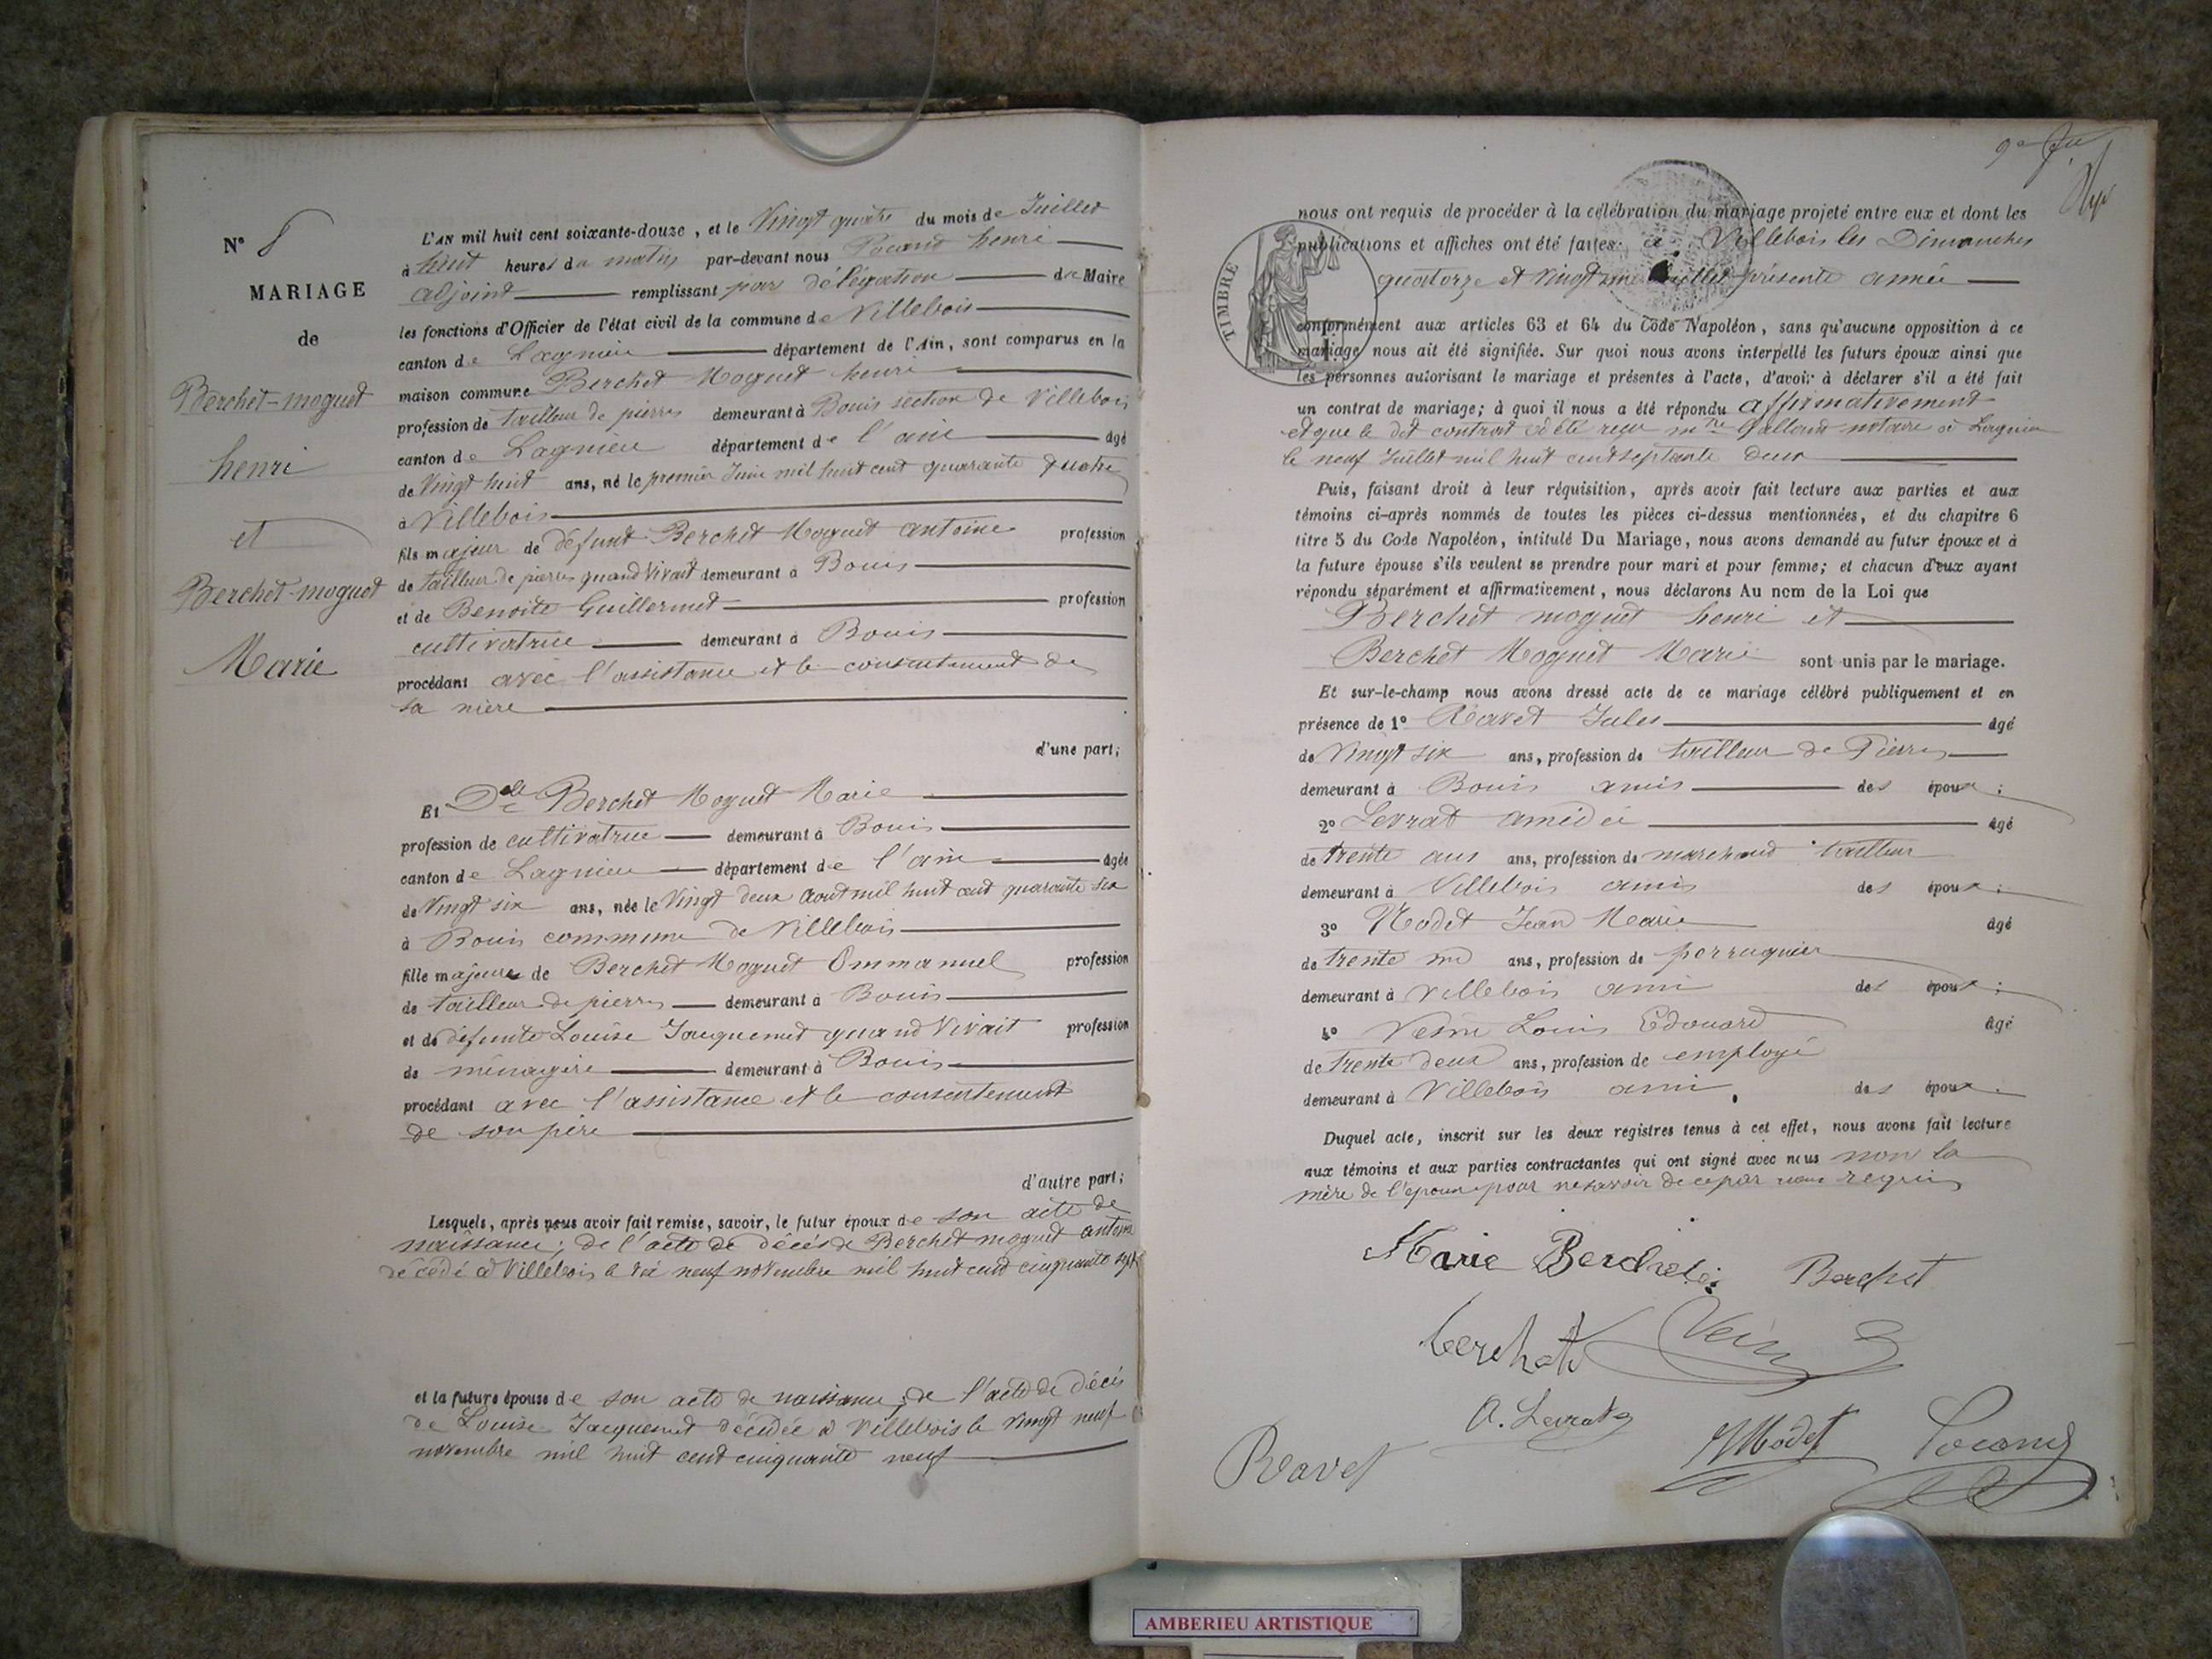 N° 8
MARIAGE
de
Berchet-moguet
henri
et
Berchet-moguet
Marie
L'AN mil huit cent soixante-douze, et le Vingt quatre du mois de Juillet
à huit heures du matin par-devant nous Pocard henri
adjoint remplissant par délégation du Maire
les fonctions d'Officier de l'état civil de la commune de Villebois
canton de Lagnieu département de l'Ain, sont comparus en la
maison commune Berchet Moguet henri
profession de tailleur de pierres demeurant à Bouis section de Villebois
canton de Lagnieu département de l'ain âgé
de Vingt huit ans, né le premier Juin mil huit cent quarante quatre
à Villebois
fils majeur de défunt Berchet Moguet antoine profession
de tailleur de pierres quand Vivait demeurant à Bouis
et de Benoite Guillermet profession
cultivatrice demeurant à Bouis
procédant avec l'assistance et le consentement de
sa mère
d'une part;
Et Delle Berchet Moguet Marie
profession de cultivatrice demeurant à Bouis
canton de Lagnieu département de l'ain âgée
de Vingt six ans, née le Vingt deux Aout mil huit cent quarante six
à Bouis commune de Villebois
fille majeure de Berchet Moguet Emmanuel profession
de tailleur de pierres demeurant à Bouis
et de défunte Louise Jacquemet quand Vivait profession
de ménagère demeurant à Bouis
procédant avec l'assistance et le consentement
de son père
d'autre part;
Lesquels, après nous avoir fait remise, savoir, le futur époux de son acte de
naissance; de l'acte de décès de Berchet moguet antoine
décédé à Villebois le dix neuf novembre mil huit cent cinquante sept
et la future épouse de son acte de naissance; de l'acte de décès
de Louise Jacquemet décédée à Villebois le vingt neuf
novembre mil huit cent cinquante neuf
nous ont requis de procéder à la célébration du mariage projeté entre eux et dont les
publications et affiches ont été faites à Villebois les Dimanches
quatorze et Vingt un Juillet présente année
TIMBRE
conformément aux articles 63 et 64 du Code Napoléon, sans qu'aucune opposition à ce
mariage nous ait été signifiée. Sur quoi nous avons interpellé les futurs époux ainsi que
les personnes autorisant le mariage et présentes à l'acte, d'avoir à déclarer s'il a été fait
un contrat de mariage; à quoi il nous a été répondu affirmativement
et que le dit contrat a été reçu mtre Galland notaire à Lagnieu
le neuf Juillet mil huit cent septante deux
Puis, faisant droit à leur réquisition, après avoir fait lecture aux parties et aux
témoins ci-après nommés de toutes les pièces ci-dessus mentionnées, et du chapitre 6
titre 5 du Code Napoléon, intitulé Du Mariage, nous avons demandé au futur époux et à
la future épouse s'ils veulent se prendre pour mari et pour femme; et chacun d'eux ayant
répondu séparément et affirmativement, nous déclarons Au nom de la Loi que
Berchet moguet henri et
Berchet Moguet Marie sont unis par le mariage.
Et sur-le-champ nous avons dressé acte de ce mariage célébré publiquement et en
présence de 1° Ravet Jules âgé
de Vingt six ans, profession de tailleur de Pierres
demeurant à Bouis amis des époux;
2° Levrat amédée âgé
de trente ans ans, profession de marchand tailleur
demeurant à Villebois amis des époux;
3° Modet Jean Marie âgé
de trente un ans, profession de perruquier
demeurant à Villebois ami des époux;
4° Vesin Louis Edouard âgé
de trente deux ans, profession de employé
demeurant à Villebois ami des époux.
Duquel acte, inscrit sur les deux registres tenus à cet effet, nous avons fait lecture
aux témoins et aux parties contractantes qui ont signé avec nous non la
mère de l'époux pour ne savoir de ce par nous requis
Marie Berchet Berchet
berchet
A. Levrat
Ravet JMModet Pocard
AMBERIEU ARTISTIQUE